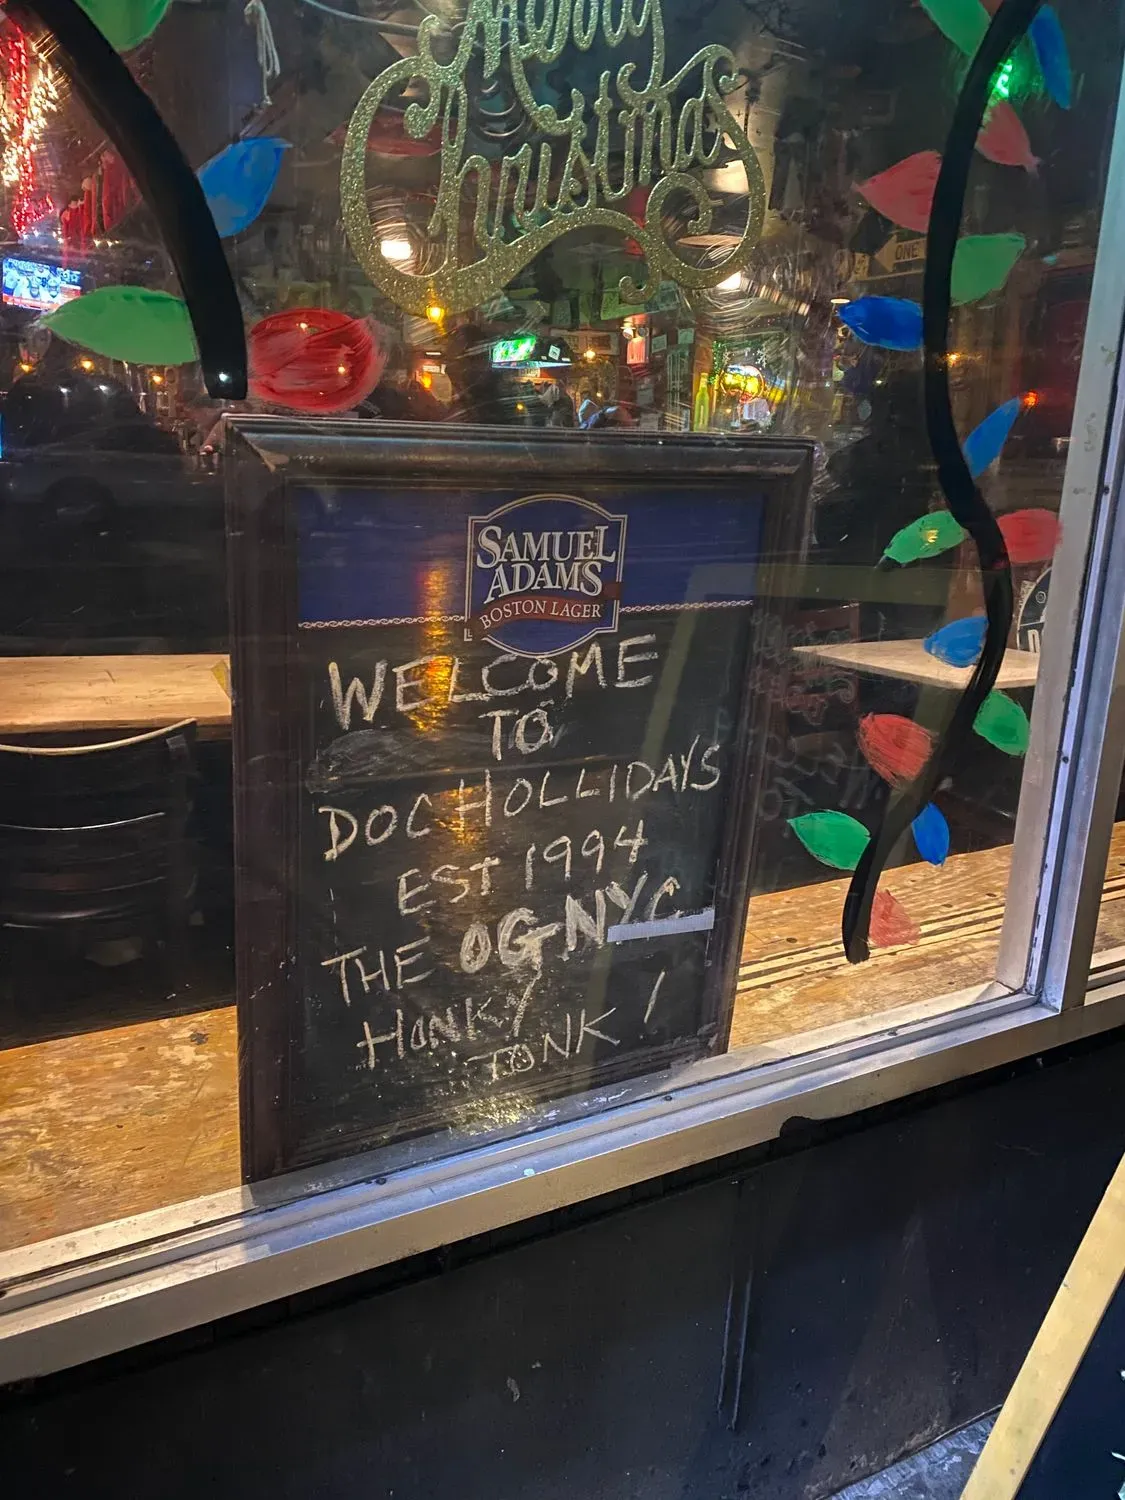 Merry
Christmas
ONE
SAMUEL
ADAMS
BOSTON LAGER
WELCOME
TO
DOC HOLLIDAYS
EST 1994
THE OG NYC
HONKY
TONK !